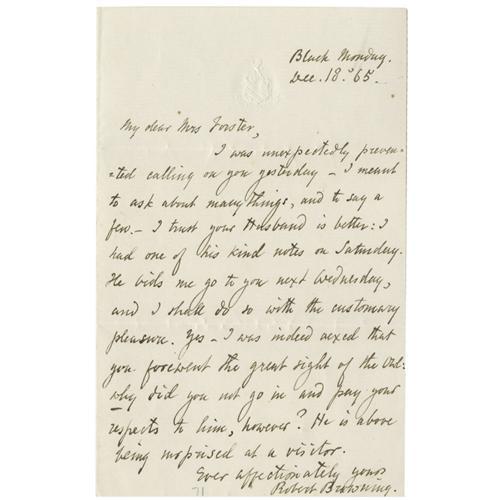 Black Monday.
Dec. 18. '65.
My dear Mrs Forster,
I was unexpectedly preven-
-ted calling on you yesterday - I meant
to ask about many things, and to say a
few. - I trust your Husband is better: I
had one of his kind notes on Saturday.
He bids me go to you next Wednesday,
and I shall do so with the customary
pleasure. Yes - I was indeed vexed that
you forewent the great sight of the Owl:
why did you not go in and pay your
respects to him, however? He is above
being surprised at a visitor.
Ever affectionately yours
Robert Browning.
71